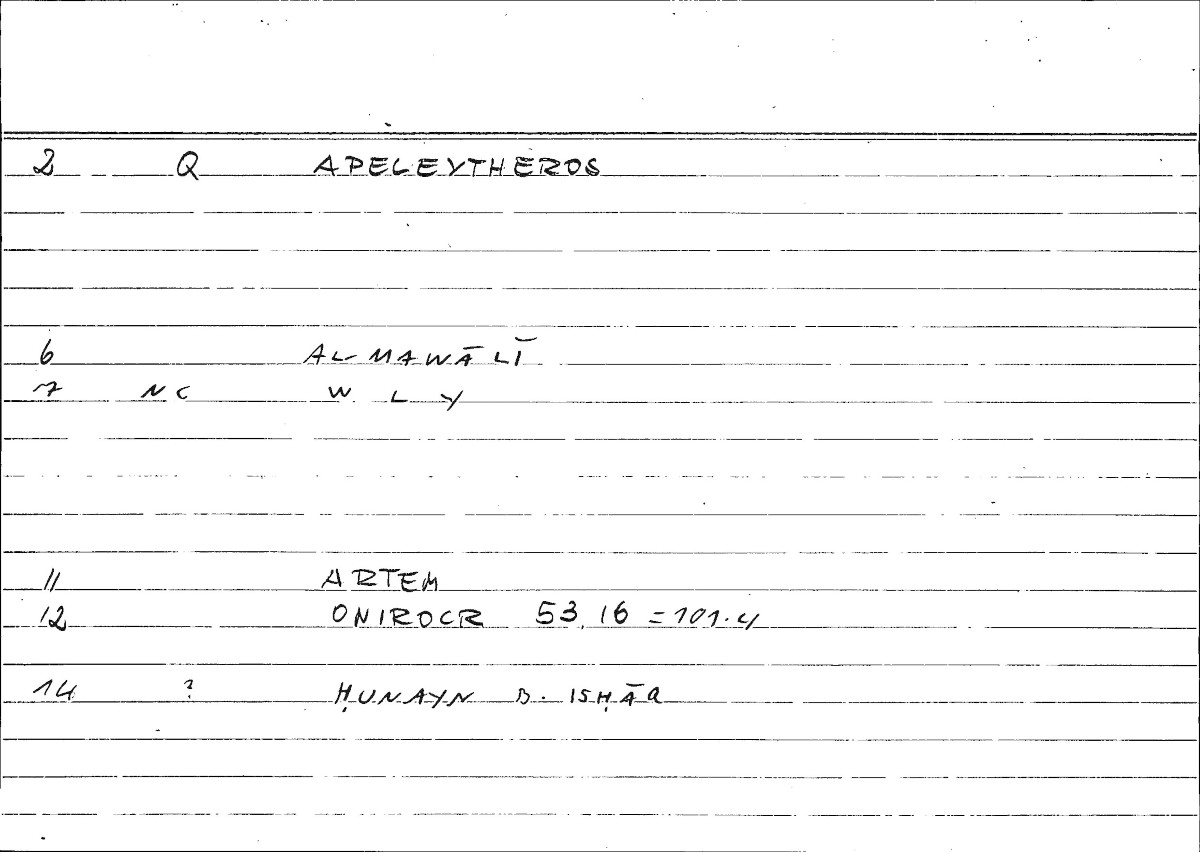 2 Q APELEYTHEROS
6 AL-MAWĀLĪ
7 NC W L Y
11 ARTEM
12 ONIROCR 53,16 = 101.4
14 ? ḤUNAYN B. ISḤĀQ